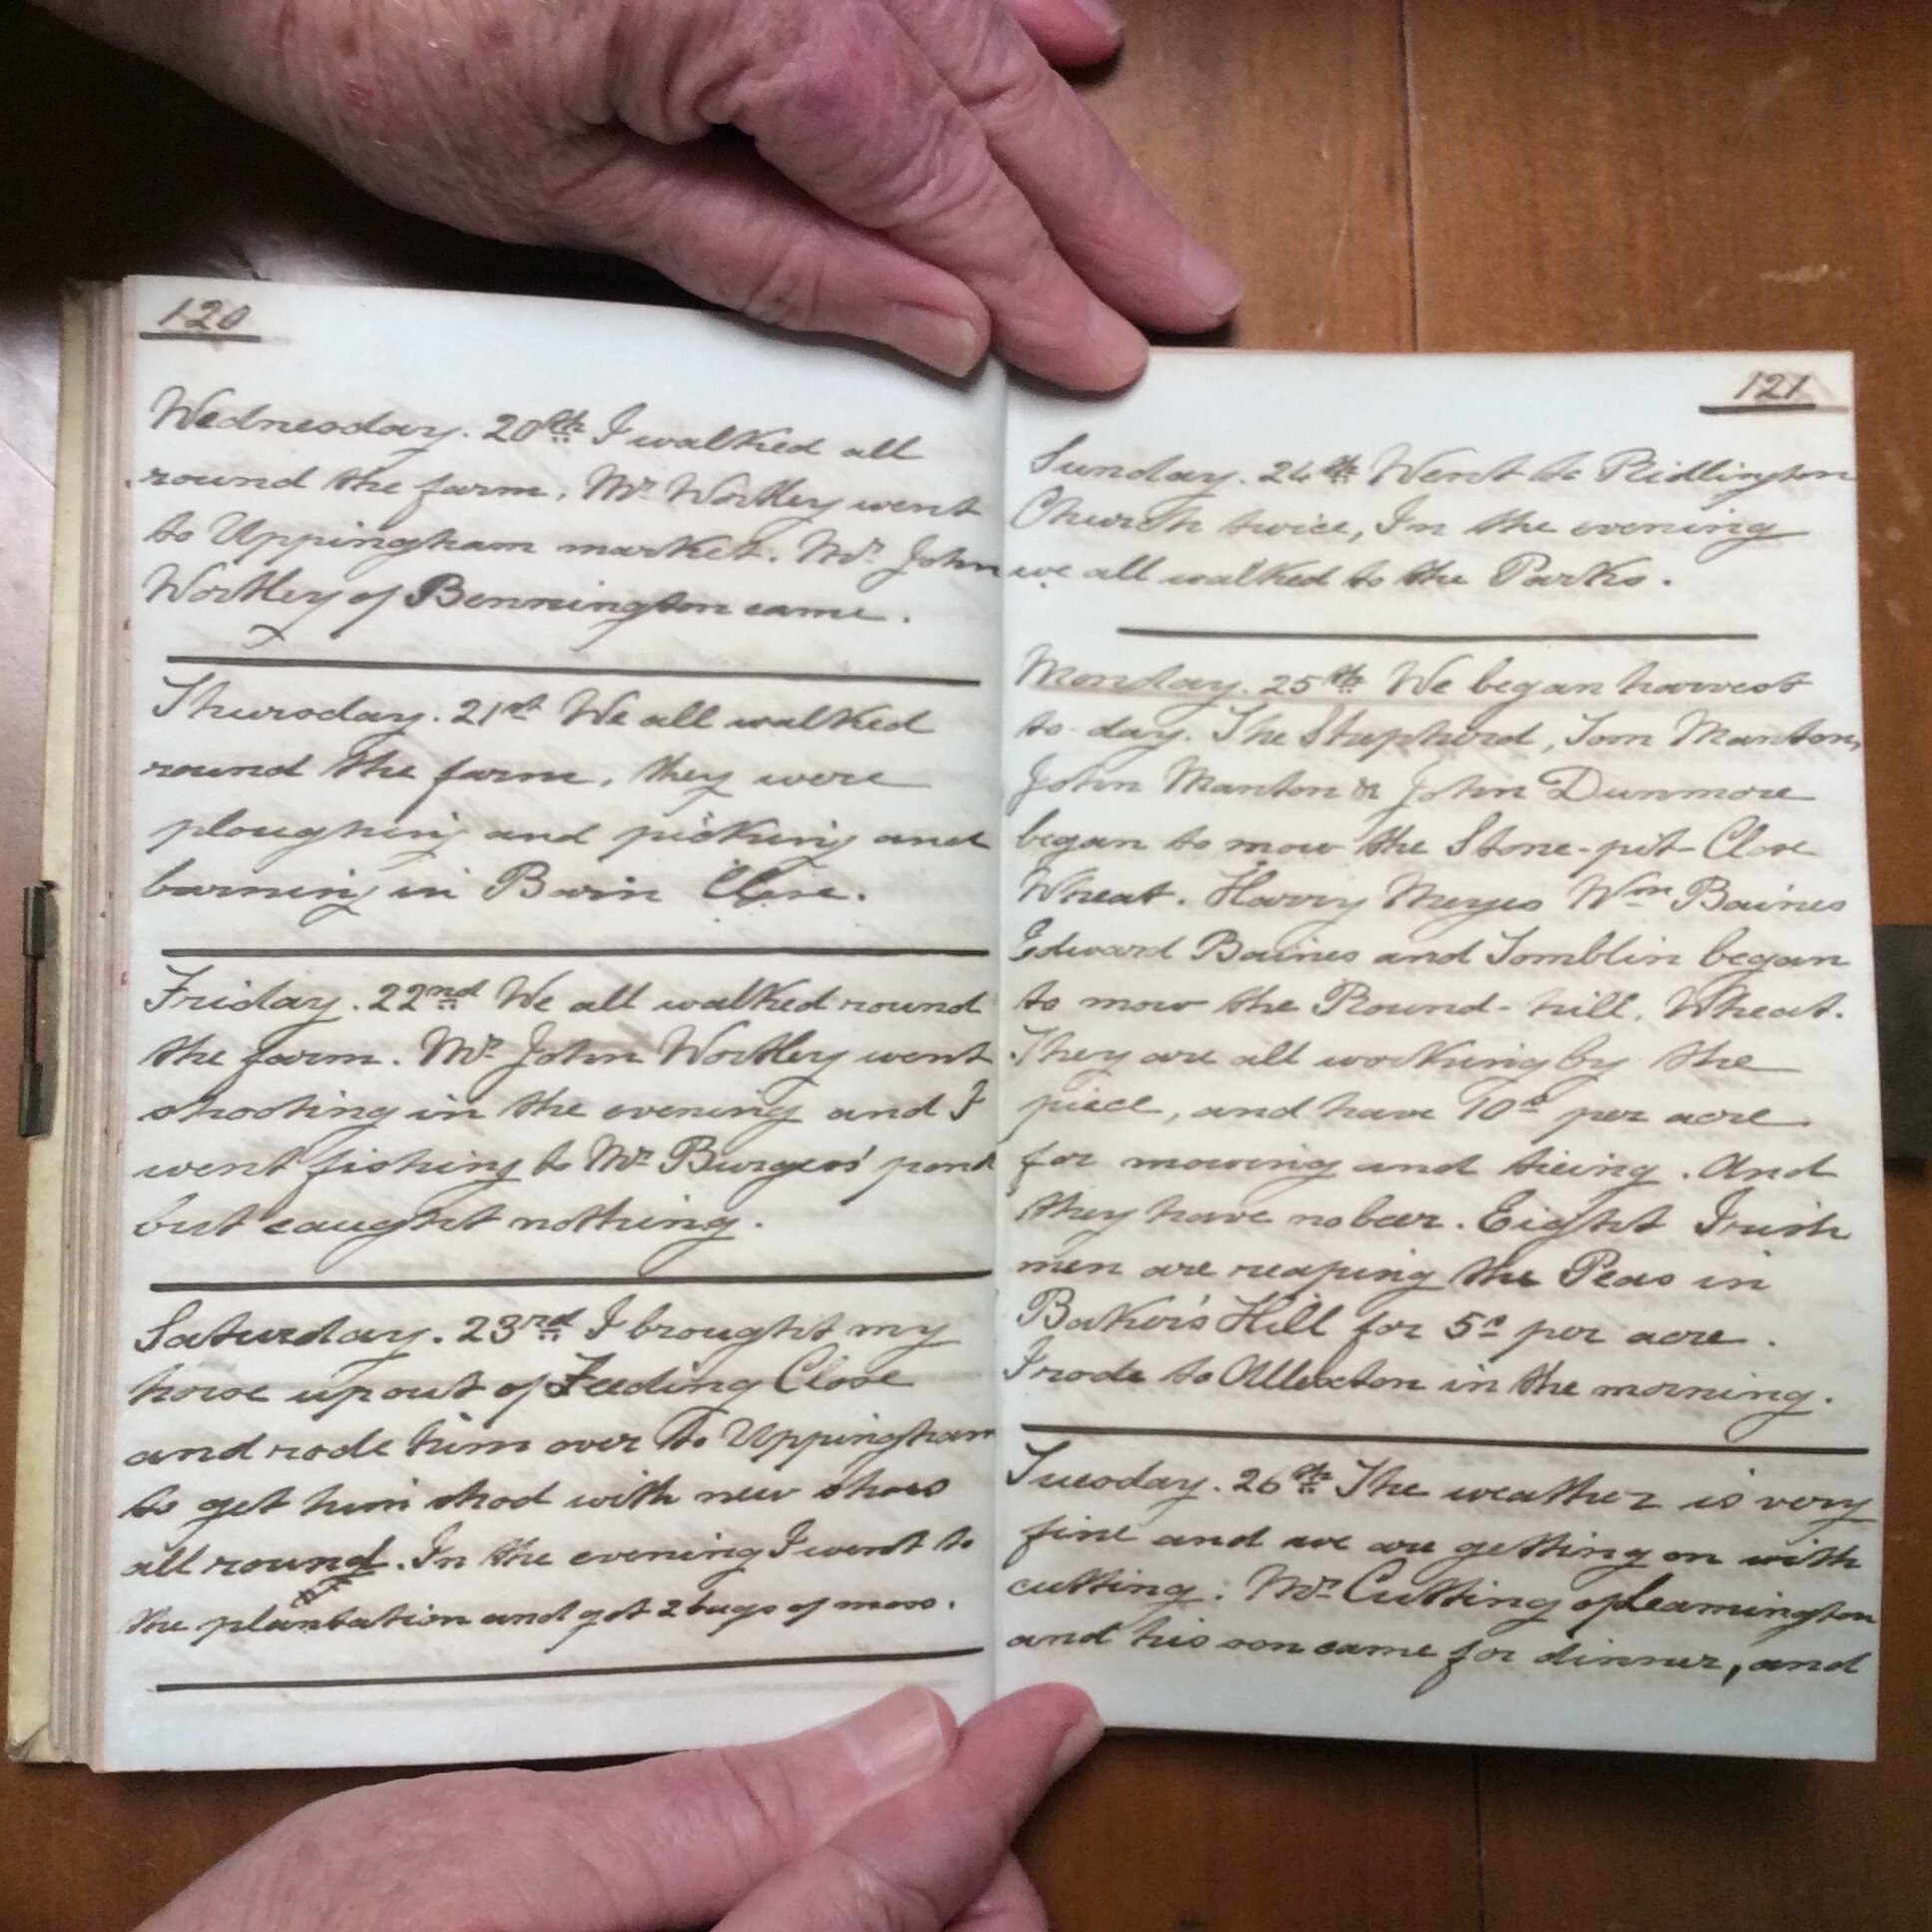 120
Wednesday. 20th I walked all
round the farm. Mr Wortley went
to Uppingham market. Mr John
Wortley of Bennington came.
Thursday. 21st We all walked
round the farm, they were
ploughing and picking and
burning in Barn Close.
Friday. 22nd We all walked round
the farm. Mr John Wortley went
shooting in the evening and I
went fishing to Mr Burgess' pond
but caught nothing.
Saturday. 23rd I brought my
horse up out of Feeding Close
and rode him over to Uppingham
to get him shod with new shoes
all round. In the evening I went to
the plantation and got 2 bags of moss.
121
Sunday. 24th Went to Ridlington
Church twice, In the evening
we all walked to the Parks.
Monday. 25th We began harvest
to-day. The Shepherd, Tom Manton,
John Manton & John Dunmore
began to mow the Stone-pit-Close
Wheat. Harry Meyes Wm Baines
Edward Baines and Tomblin began
to mow the Round-hill, Wheat.
They are all working by the
piece, and have 10s per acre
for mowing and tieing. And
they have no beer. Eight Irish
men are reaping the Peas in
Baker's Hill for 5s per acre.
I rode to Allexton in the morning.
Tuesday. 26th The weather is very
fine and we are getting on with
cutting: Mr Cutting of Leamington
and his son came for dinner, and